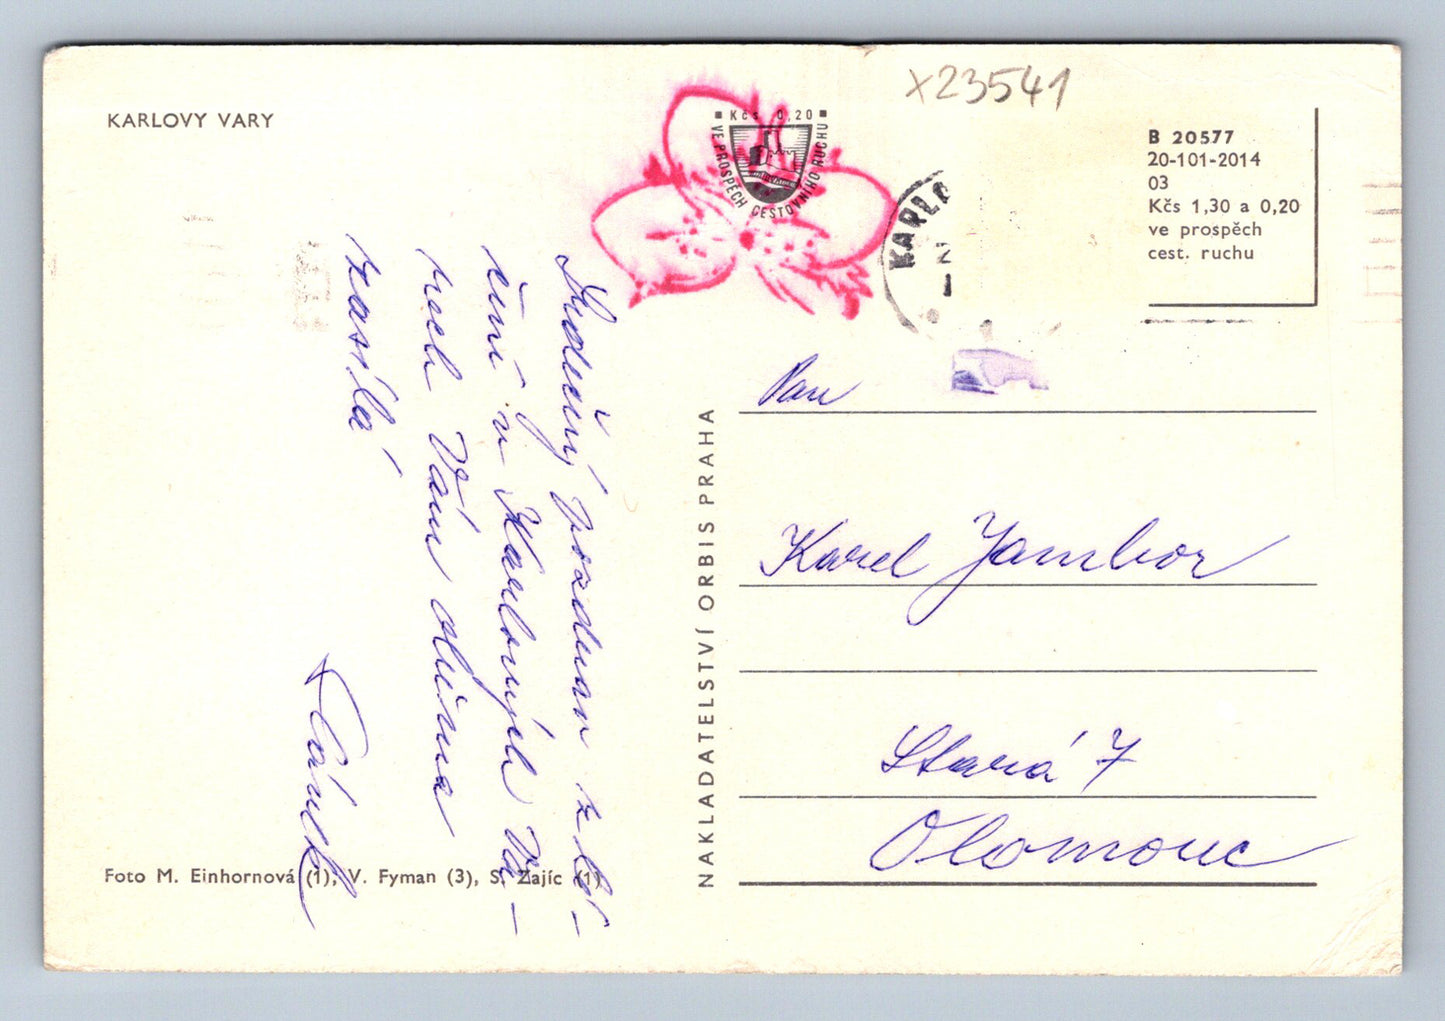 KARLOVY VARY
x23541
Kčs 0,20
VE PROSPĚCH CESTOVNÍHO RUCHU
KARLO
B 20577
20-101-2014
03
Kčs 1,30 a 0,20
ve prospěch
cest. ruchu
Srdečný pozdrav z lé-
čení v Karlových Va-
rech Vám všema
zasílá
Vánek
NAKLADATELSTVÍ ORBIS PRAHA
Pan
Karel Jambor
Stará 7
Olomouc
Foto M. Einhornová (1), V. Fyman (3), S. Zajíc (1)